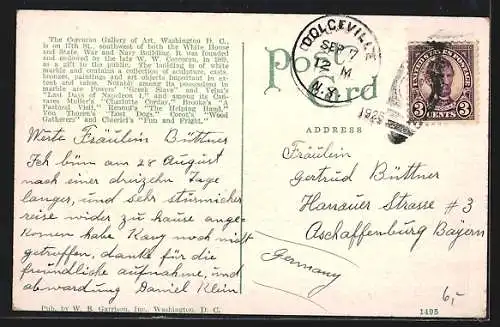 The Corcoran Gallery of Art, Washington D. C.,
is on 17th St., southwest of both the White House
and State War and Navy Building. It was founded
and endowed by the late W. W. Corcoran, in 1869,
as a gift to the public. The building is of white
marble and contains a collection of sculpture, casts,
bronzes, paintings and art objects important in ex-
tent and value. Notable among its possessions in
marble are Powers' "Greek Slave" and Vela's
"Last Days of Napoleon I," and among its Can-
vases Muller's "Charlotte Corday",
Pastoral Visit," Renouf's "The Helping Hand,"
Von Thoren's "Lost Dogs," Corot's "Wood
Gatherers" and "Fun and Fright."
Post
Card
DOLGEVILLE
SEP 7
12 M
N.Y.
1926
3 CENTS 3
ADDRESS
Werte Fräulein Büttner
Ich büm am 28 August
nach einer dreizehn Tage
langer, und sehr stürmicher
reise wider zu hause ange-
komen habe Karry noch nicht
getroffen, danke für die
freundliche aufnahme, und
abwardung Daniel Klein
Fräulein
Gertrud Büttner
Hanauer Strasse #3
Aschaffenburg Bayern
Germany
6,-
Pub. by W. B. Garrison, Inc., Washington, D. C.
1495